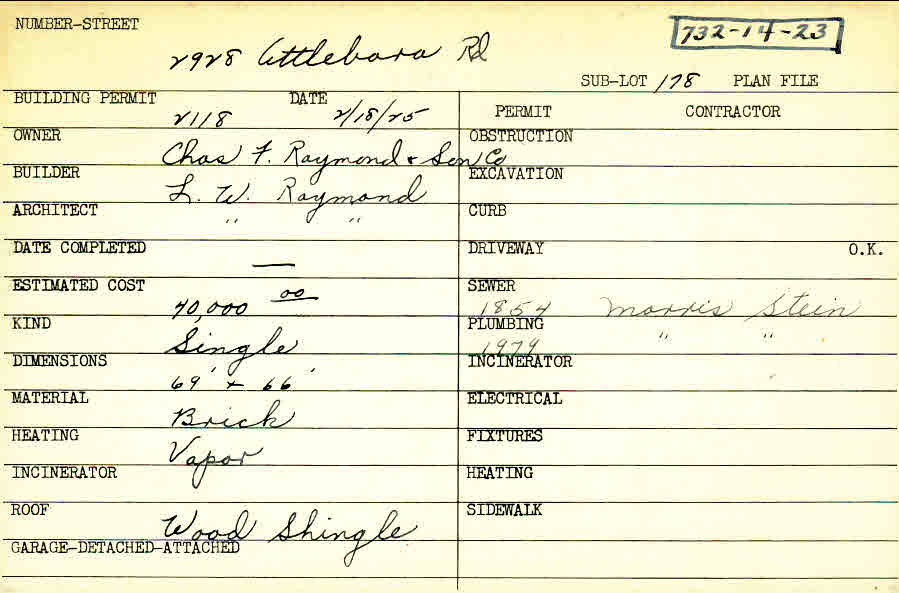 NUMBER-STREET
732-14-23
2928 Attleboro Rd
SUB-LOT 178 PLAN FILE
BUILDING PERMIT DATE
2118 2/18/25
OWNER
Chas F. Raymond & Son Co
BUILDER
L. W. Raymond
ARCHITECT
" "
DATE COMPLETED
—
ESTIMATED COST
40,000 00
KIND
Single
DIMENSIONS
69' x 66'
MATERIAL
Brick
HEATING
Vapor
INCINERATOR
ROOF
Wood Shingle
GARAGE-DETACHED-ATTACHED
PERMIT CONTRACTOR
OBSTRUCTION
EXCAVATION
CURB
DRIVEWAY O.K.
SEWER
1854 Morris Stein
PLUMBING
1979 " "
INCINERATOR
ELECTRICAL
FIXTURES
HEATING
SIDEWALK